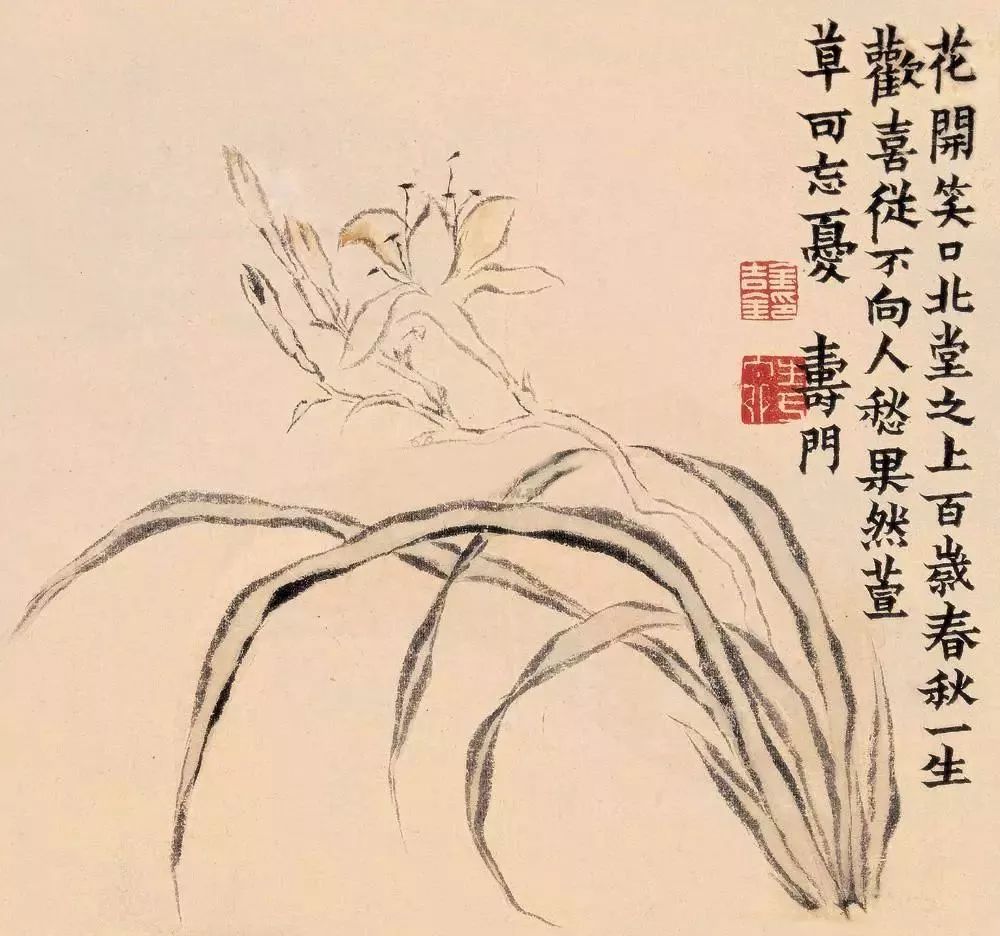 花開笑口北堂之上百歲春秋一生
歡喜從不向人愁果然萱
草可忘憂 壽門
金吉金印